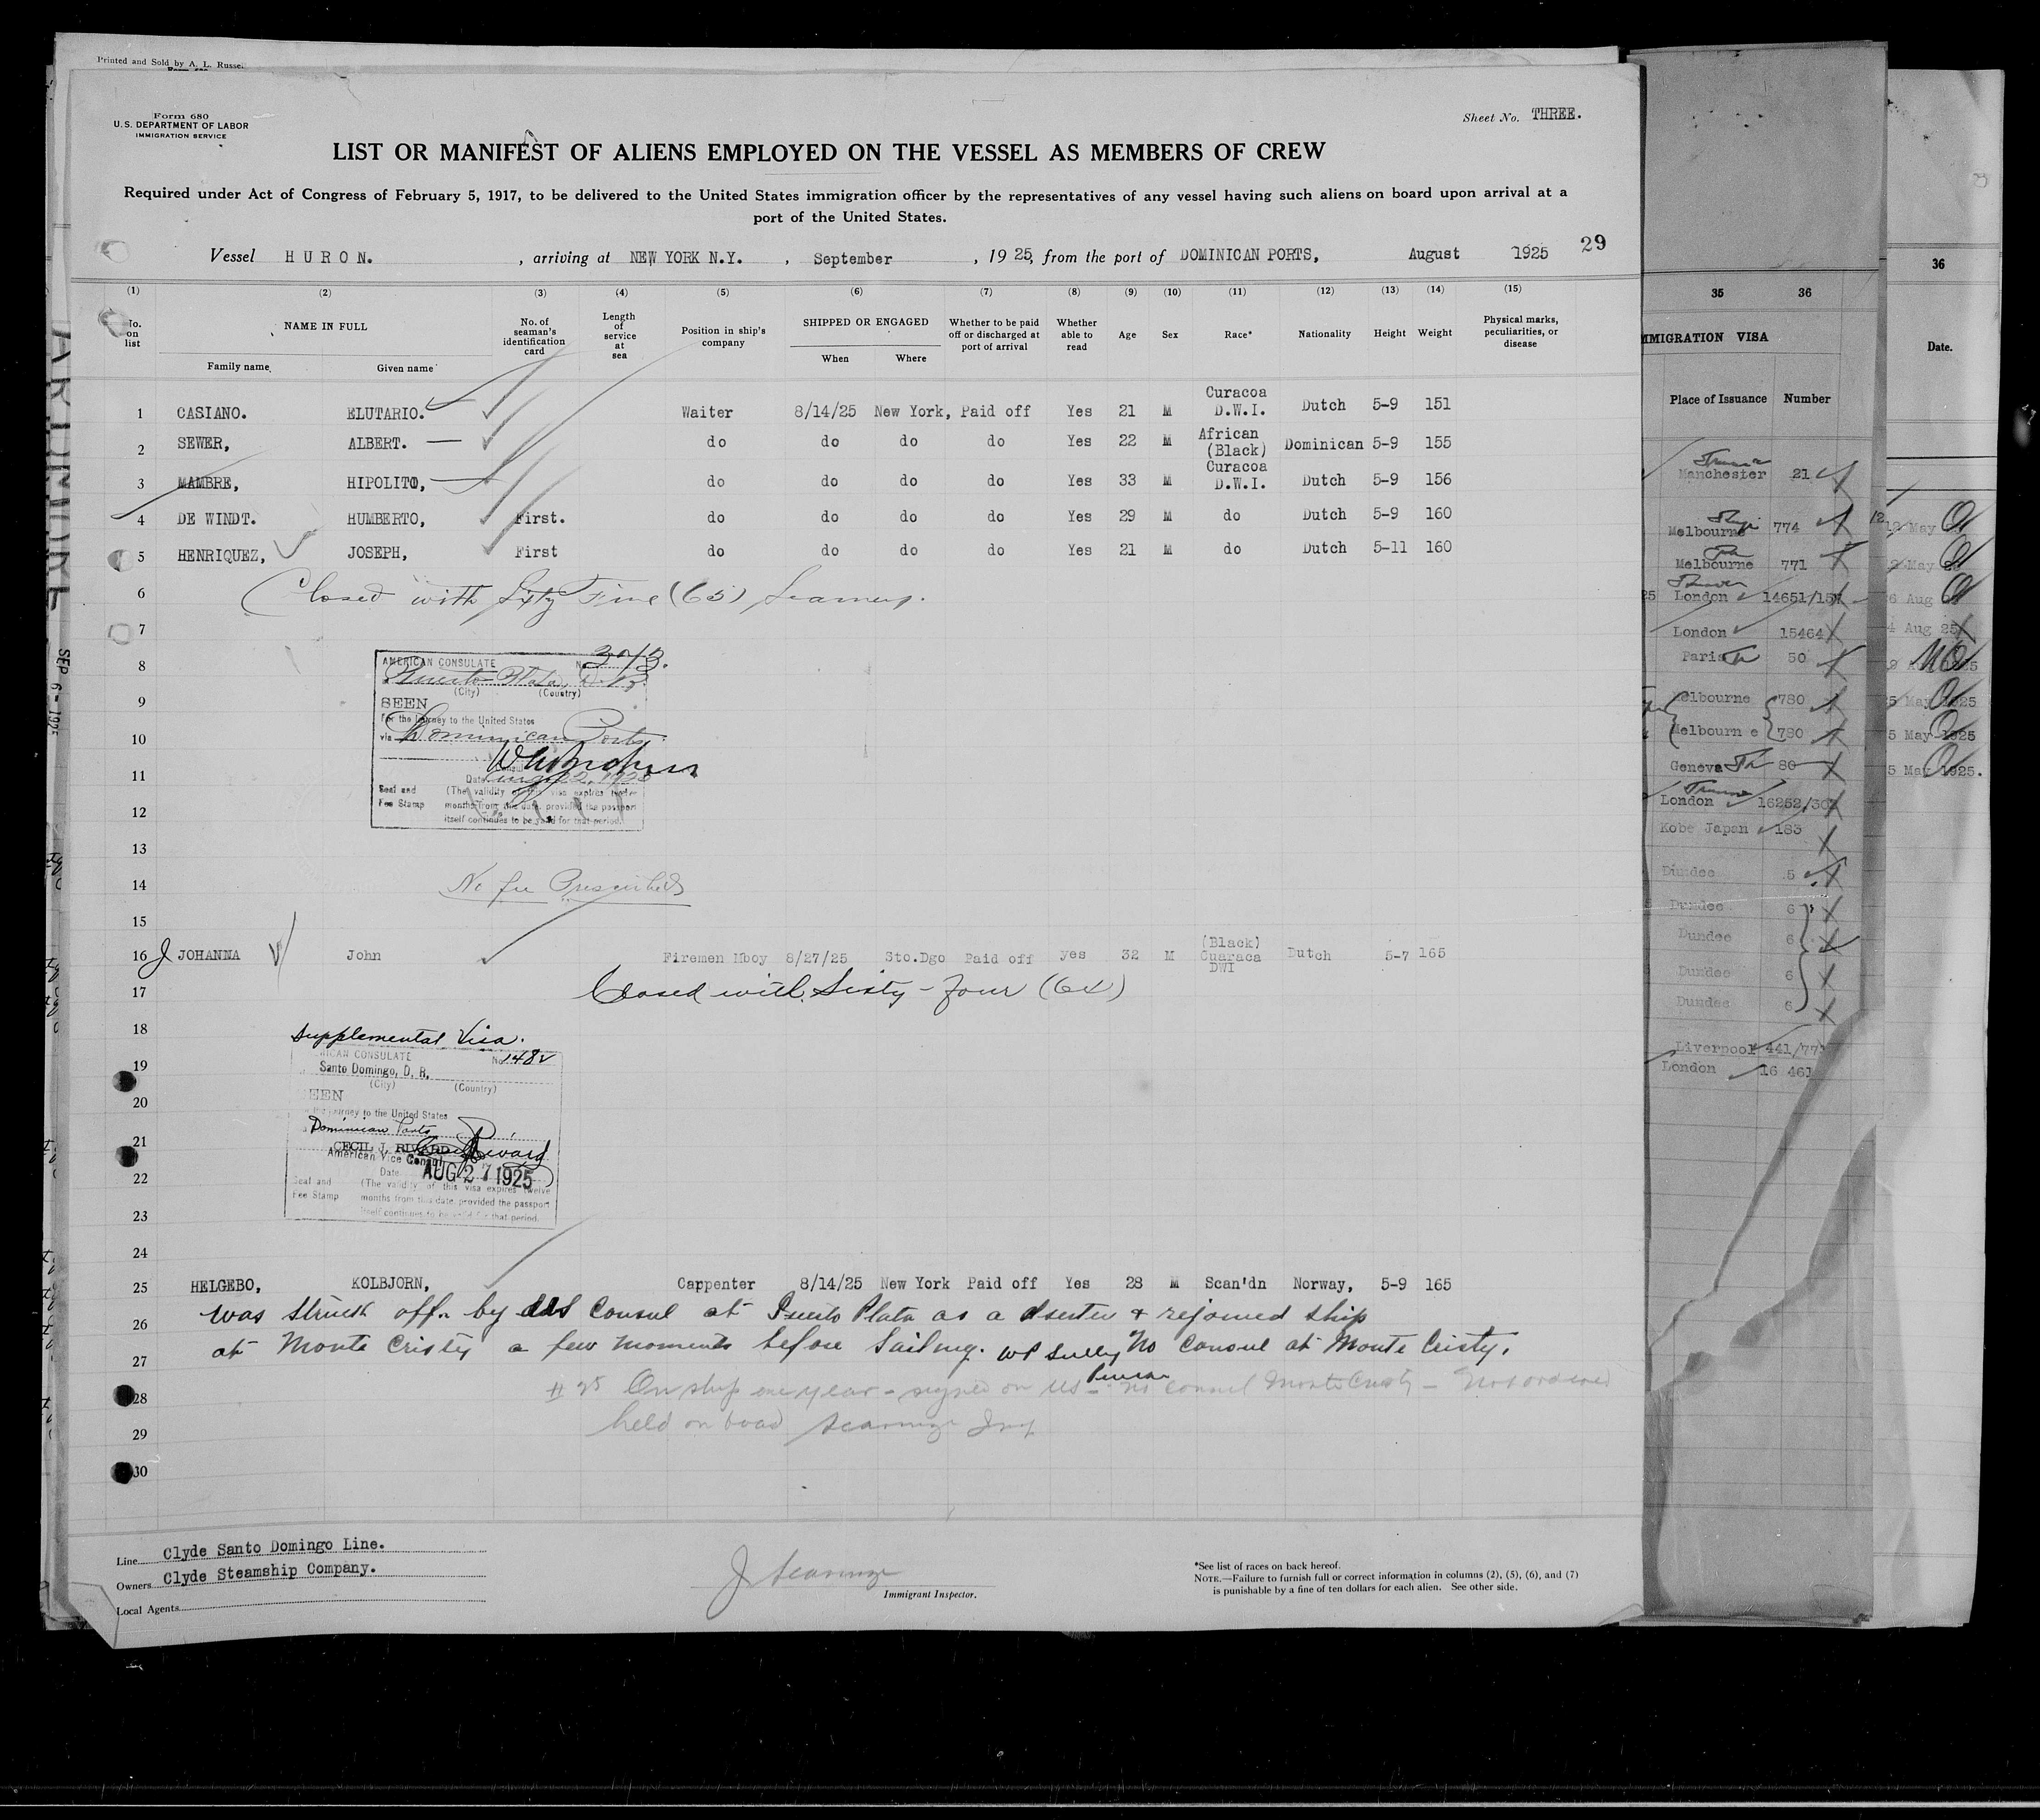 Printed and Sold by A. L. Russe
Form 680
U.S. DEPARTMENT OF LABOR
IMMIGRATION SERVICE
Sheet No. THREE.
LIST OR MANIFEST OF ALIENS EMPLOYED ON THE VESSEL AS MEMBERS OF CREW
Required under Act of Congress of February 5, 1917, to be delivered to the United States immigration officer by the representatives of any vessel having such aliens on board upon arrival at a
port of the United States.
Vessel HURON. , arriving at NEW YORK N.Y. , September , 1925, from the port of DOMINICAN PORTS, August 1925 29
(1) (2) (3) (4) (5) (6) (7) (8) (9) (10) (11) (12) (13) (14) (15)
No. on list NAME IN FULL Family name Given name No. of seaman's identification card Length of service at sea Position in ship's company SHIPPED OR ENGAGED When Where Whether to be paid off or discharged at port of arrival Whether able to read Age Sex Race* Nationality Height Weight Physical marks, peculiarities, or disease
1 CASIANO. ELUTARIO. Waiter 8/14/25 New York, Paid off Yes 21 M Curacoa D.W.I. Dutch 5-9 151
2 SEWER, ALBERT. do do do do Yes 22 M African (Black) Dominican 5-9 155
3 MAMBRE, HIPOLITO, do do do do Yes 33 M Curacoa D.W.I. Dutch 5-9 156
4 DE WINDT. HUMBERTO, First. do do do do Yes 29 M do Dutch 5-9 160
5 HENRIQUEZ, JOSEPH, First do do do do Yes 21 M do Dutch 5-11 160
6 Closed with Sixty Five (65) Seamen.
7
8 AMERICAN CONSULATE No.
Puerto Plata, D.R.
(City) (Country)
9 SEEN
For the journey to the United States
10 via Dominican Ports
11 Date Aug 22, 1925
Seal and Fee Stamp (The validity of this visa expires twelve
12 months from this date, provided the passport
itself continues to be valid for that period.
13
14 No fee Prescribed
15
16 JOHANNA John Firemen Mboy 8/27/25 Sto.Dgo Paid off yes 32 M (Black) Cuaraca DWI Dutch 5-7 165
17 Closed with Sixty-Four (64)
18 Supplemental Visa.
RICAN CONSULATE No. 148
19 Santo Domingo, D. R.
(City) (Country)
20 EEN
journey to the United States
Dominican Ports
21 CECIL J. RIVARD
American Vice Consul
Date AUG 27 1925
22 Seal and Fee Stamp (The validity of this visa expires twelve
months from this date, provided the passport
23 itself continues to be valid for that period.
24
25 HELGEBO, KOLBJORN, Cappenter 8/14/25 New York Paid off Yes 28 M Scan'dn Norway, 5-9 165
26 was struck off by US Consul at Puerto Plata as a deserter & rejoined ship
27 at Monte Cristy a few moments before Sailing. No Consul at Monte Cristy.
28 # 25 On ship one year - signed on US - no consul Monte Cristy -
29 held on board
30
Line Clyde Santo Domingo Line.
Owners Clyde Steamship Company.
Local Agents
Immigrant Inspector.
*See list of races on back hereof.
NOTE.—Failure to furnish full or correct information in columns (2), (5), (6), and (7)
is punishable by a fine of ten dollars for each alien. See other side.
SEP 6- 1925
35 36
MMIGRATION VISA
Place of Issuance Number
Manchester 21
Melbourne 774
Melbourne 771
London 14651/15
London 15464
Paris 50
Melbourne 780
Melbourn e 780
Geneva 80
London 16252/30
Kobe Japan 183
Dundee 5
Dundee 6
Dundee 6
Dundee 6
Dundee 6
Liverpool 441/77
London 16 461
36
Date.
12 May
May
6 Aug
4 Aug 25
5 May 1925
5 May 1925
5 May 1925.